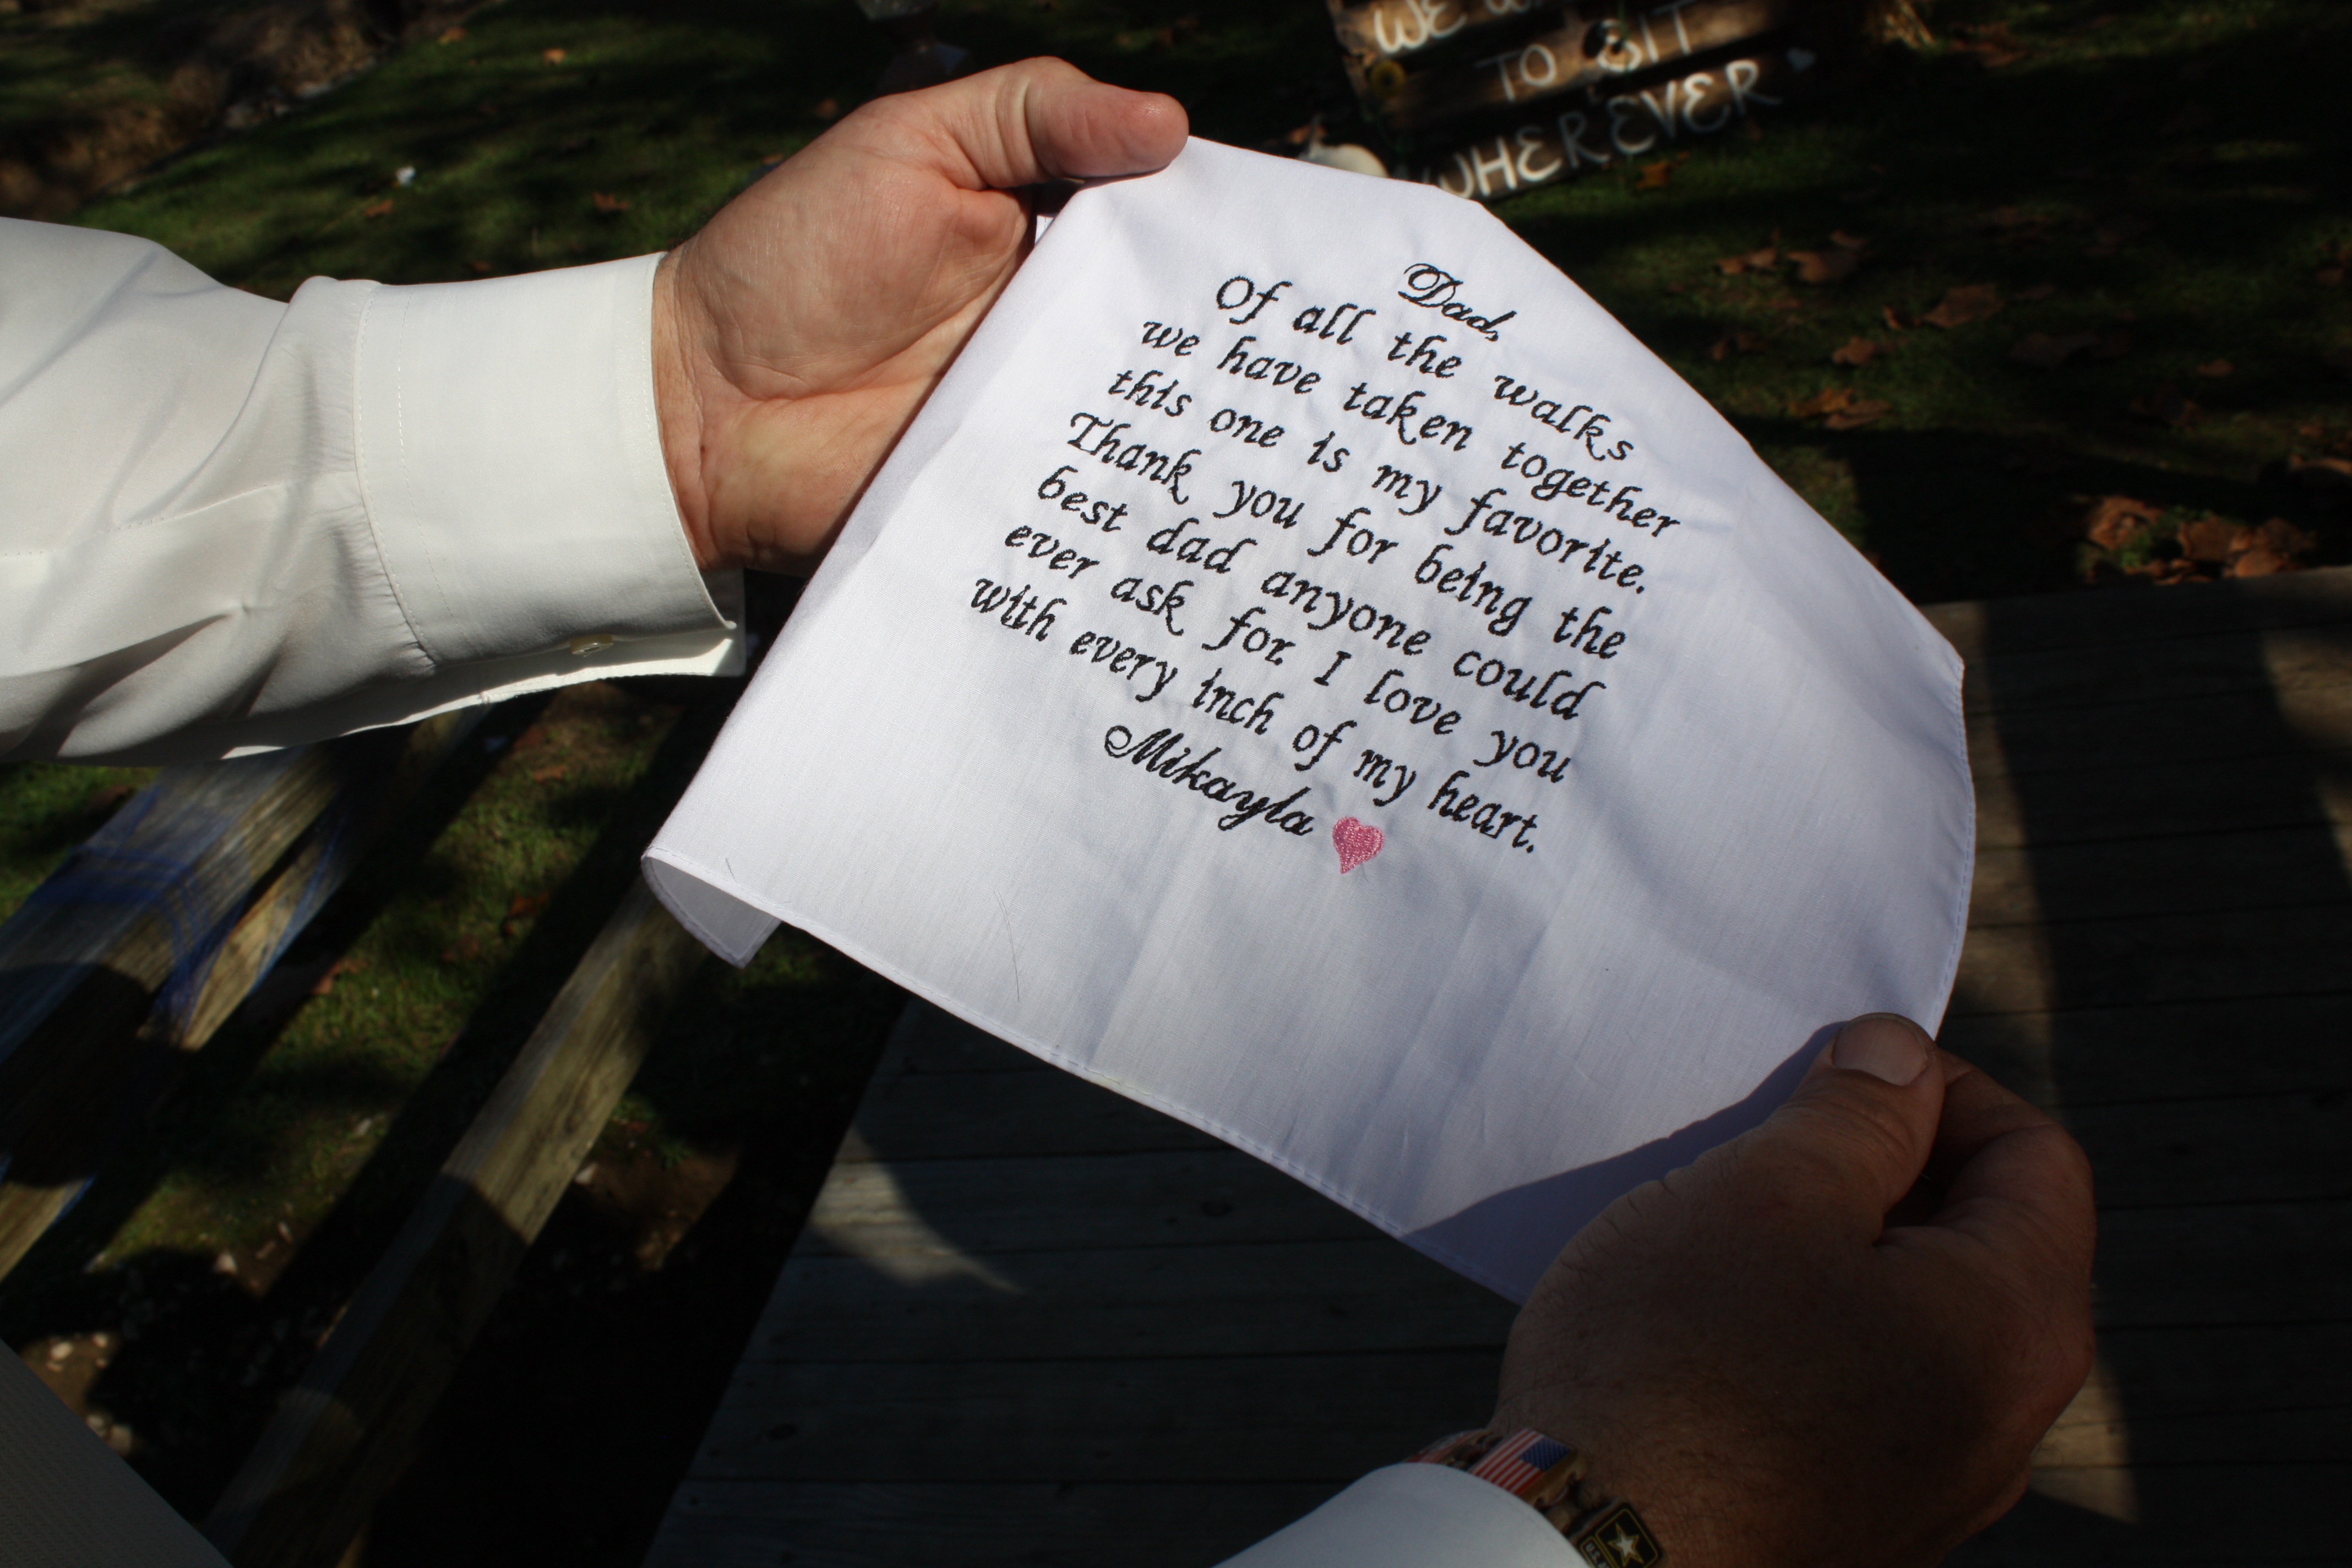 WE
TO SIT
WHEREVER
Dad,
Of all the walks
we have taken together
this one is my favorite.
Thank you for being the
best dad anyone could
ever ask for. I love you
with every inch of my heart.
Mikayla